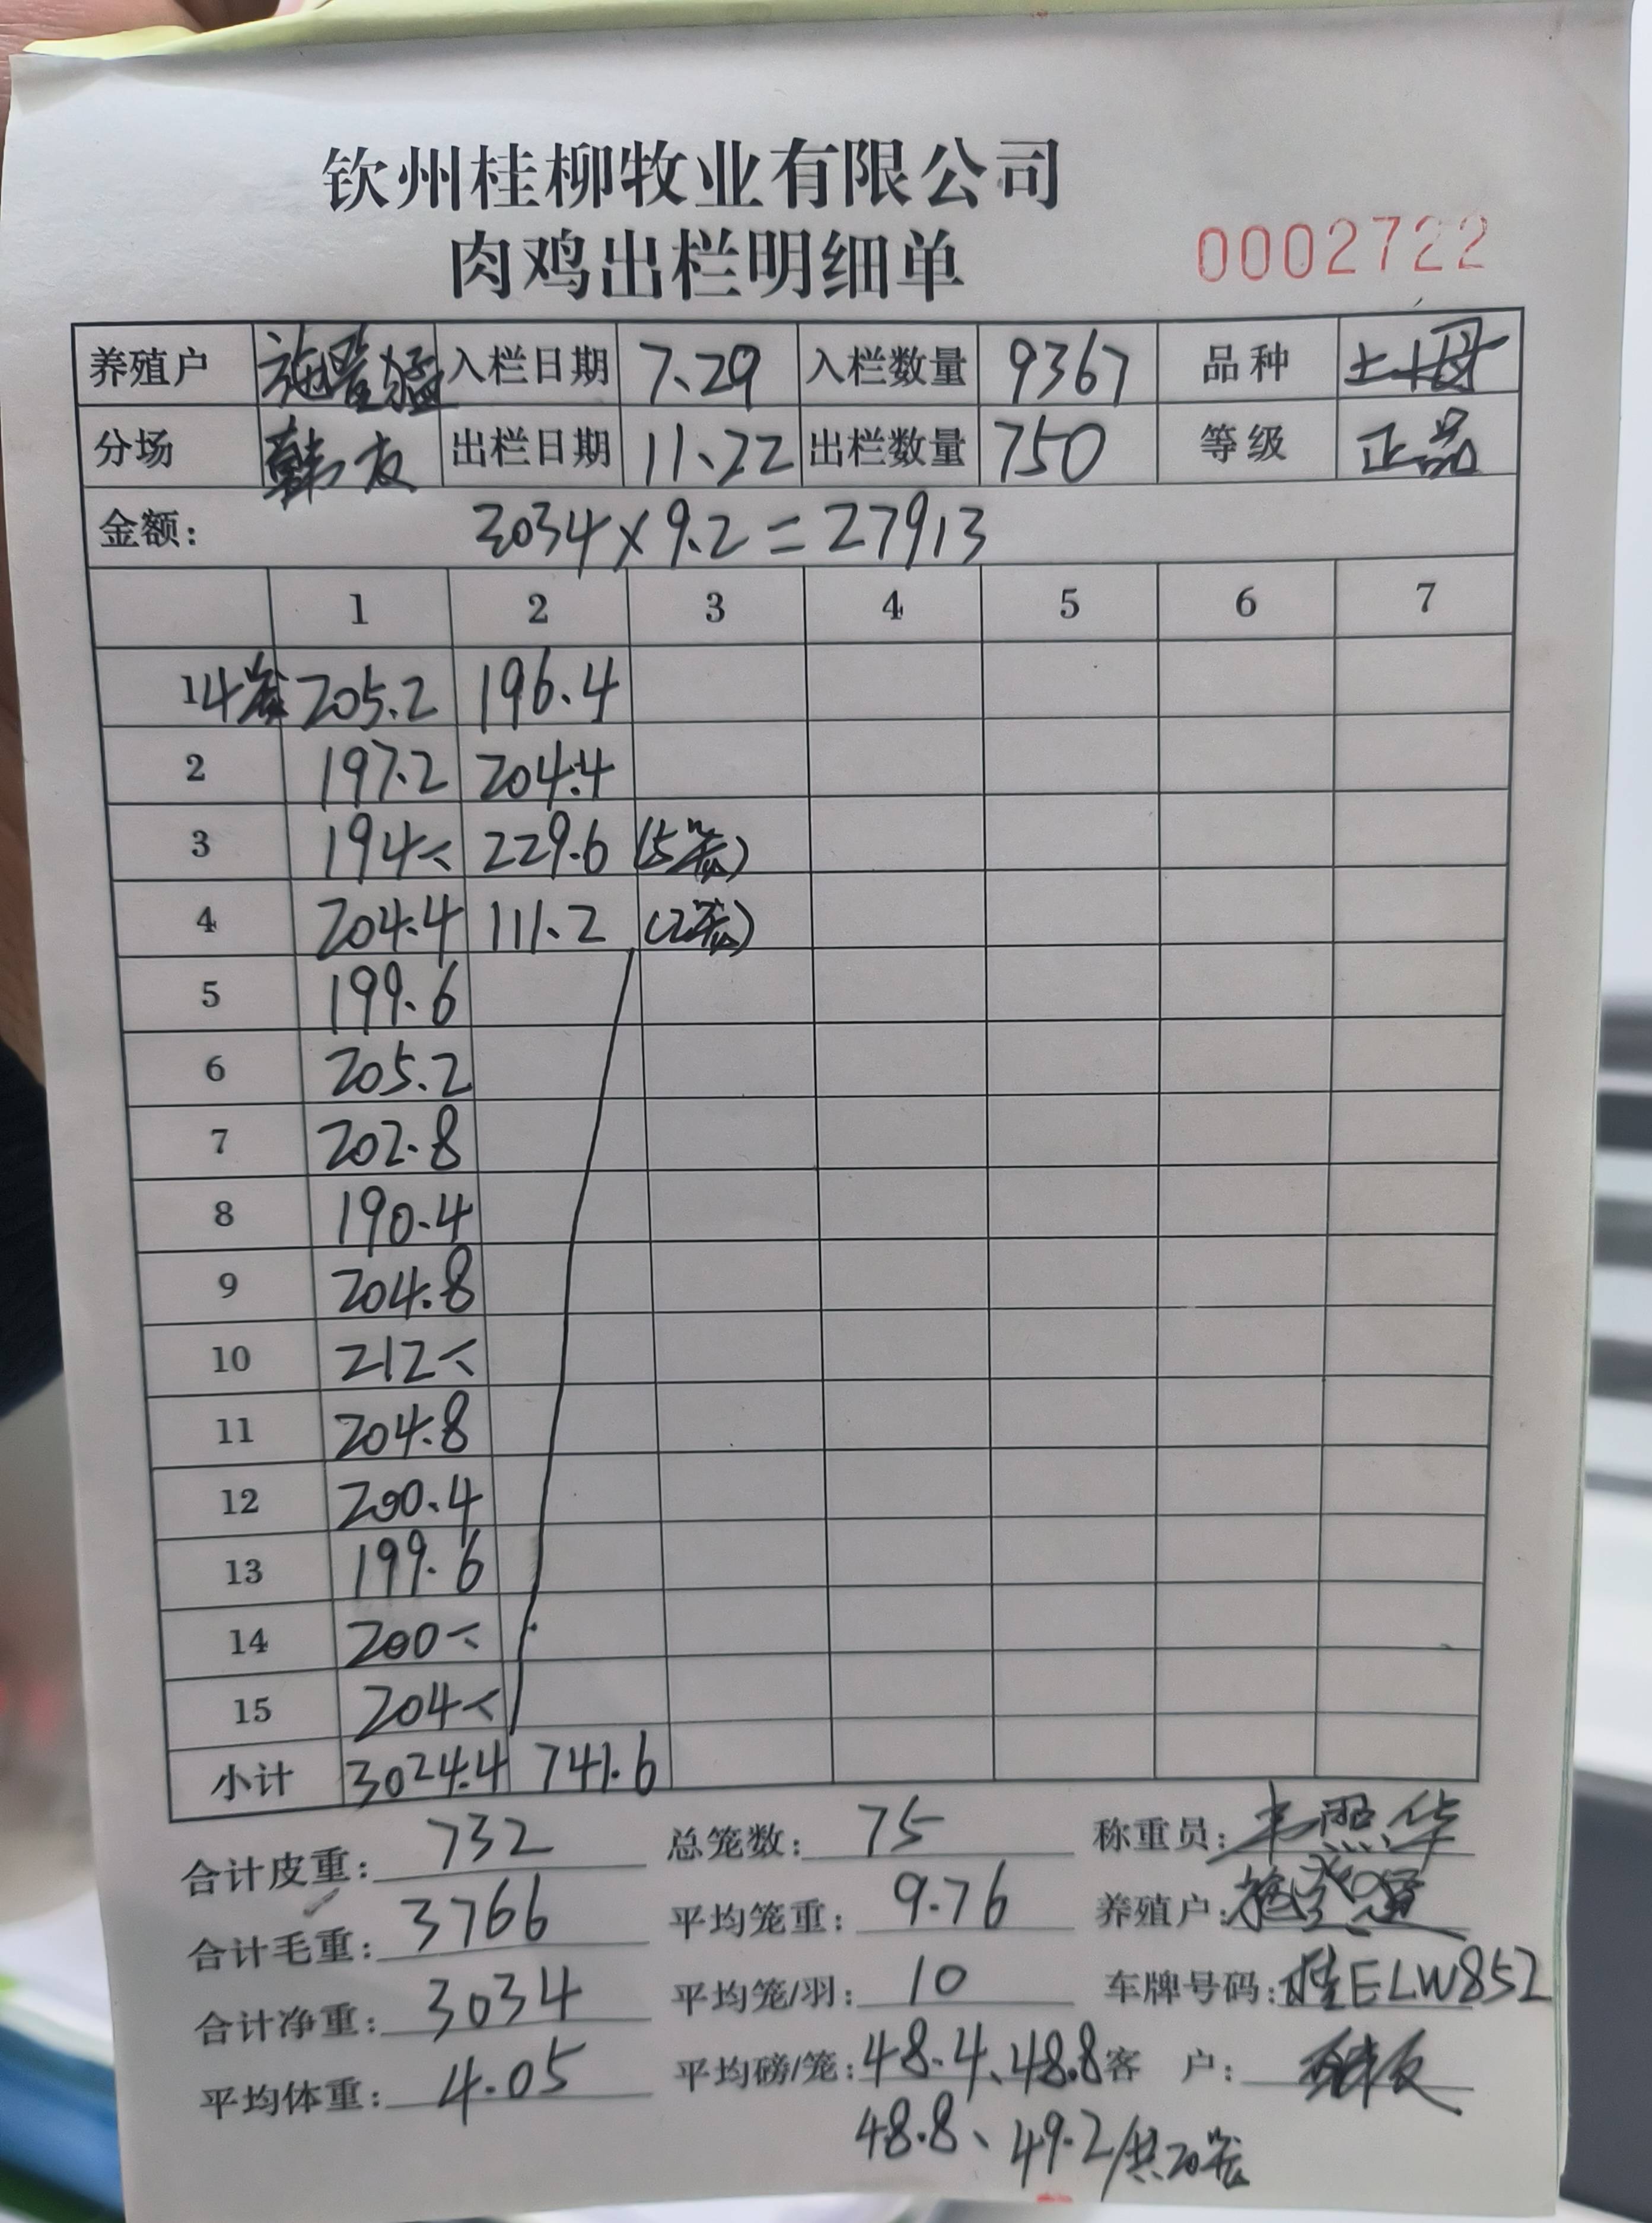 钦州桂柳牧业有限公司
肉鸡出栏明细单 0002722
养殖户 入栏日期 7.29 入栏数量 9367 品种 土母
分场 韩友 出栏日期 11.22 出栏数量 750 等级 正品
金额: 3034×9.2=27913
1 2 3 4 5 6 7
1 4笼 205.2 196.4
2 197.2 204.4
3 194 229.6 (5笼)
4 204.4 111.2 (2笼)
5 199.6
6 205.2
7 202.8
8 190.4
9 204.8
10 212
11 204.8
12 200.4
13 199.6
14 200
15 204
小计 3024.4 741.6
合计皮重: 732 总笼数: 75 称重员: 韦照华
合计毛重: 3766 平均笼重: 9.76 养殖户:
合计净重: 3034 平均笼/羽: 10 车牌号码: 桂ELW852
平均体重: 4.05 平均磅/笼: 48.4、48.8 客 户:
48.8、49.2/共20笼